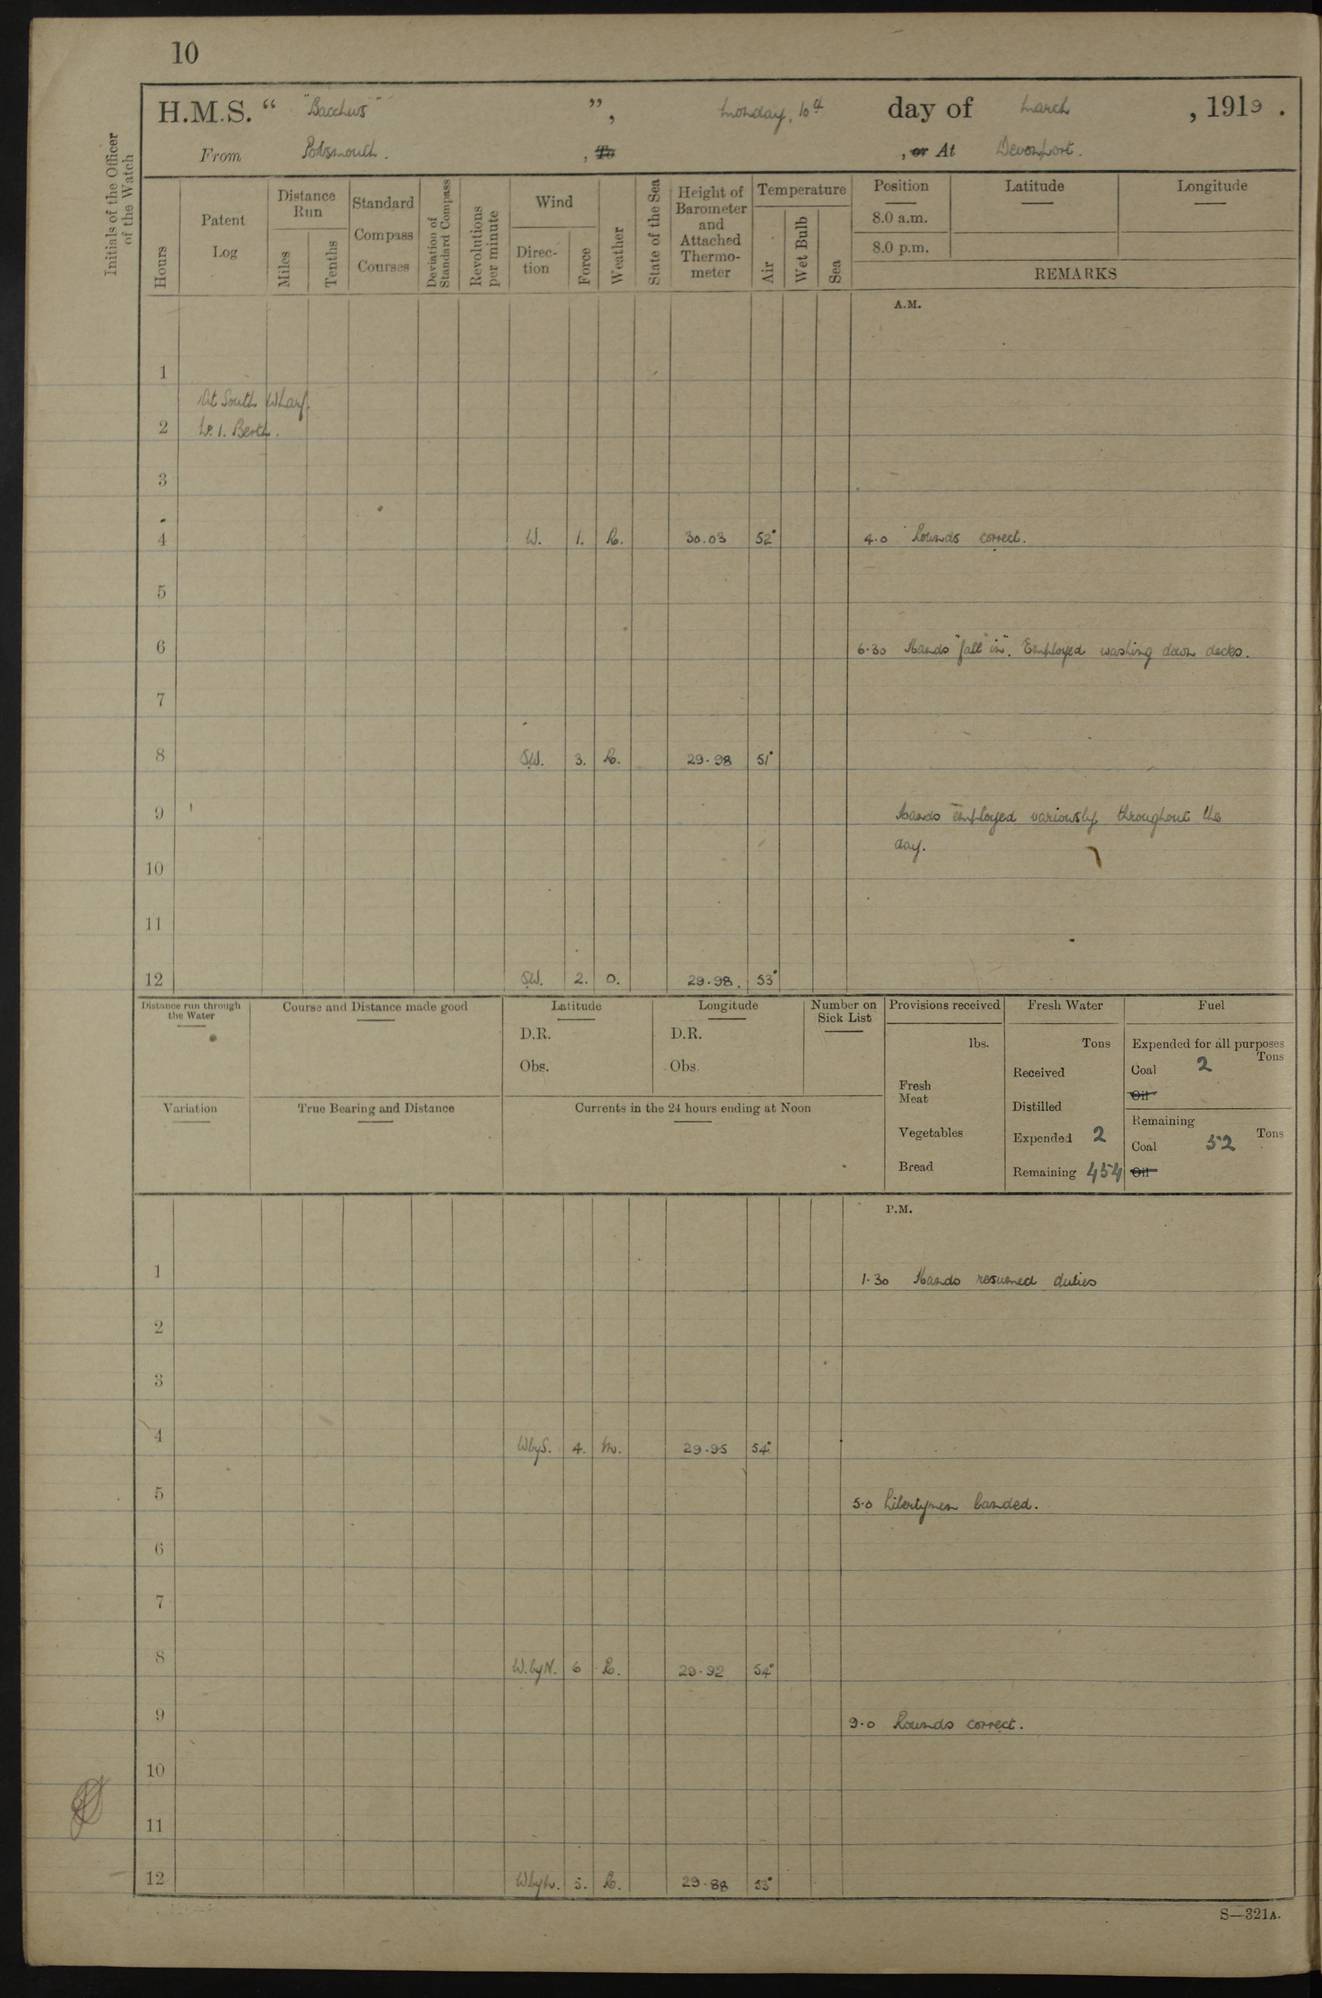 10
H.M.S. " "Bacchus" ", Monday, 10th day of March, 1919.
From Portsmouth. , To , or At Devonport.
Initials of the Officer of the Watch
Hours
Patent Log
Distance Run
Miles
Tenths
Standard Compass Courses
Deviation of Standard Compass
Revolutions per minute
Wind
Direction
Force
Weather
State of the Sea
Height of Barometer and Attached Thermometer
Temperature
Air
Wet Bulb
Sea
Position Latitude Longitude
8.0 a.m.
8.0 p.m.
REMARKS
A.M.
1
At South Wharf.
2 No. 1. Berth.
3
4 W. 1. R. 30.03 52° 4.0 Rounds correct.
5
6 6.30 Hands "fall in". Employed washing down decks.
7
8 SW. 3. R. 29.98 51°
9 Hands employed variously throughout the
day.
10
11
12 SW. 2. O. 29.98. 53°
Distance run through the Water
Course and Distance made good
Latitude
D.R.
Obs.
Longitude
D.R.
Obs.
Number on Sick List
Provisions received
lbs.
Fresh Meat
Vegetables
Bread
Fresh Water
Tons
Received
Distilled
Expended 2
Remaining 454
Fuel
Expended for all purposes
Tons
Coal 2
Oil
Remaining
Tons
Coal 52
Oil
Variation
True Bearing and Distance
Currents in the 24 hours ending at Noon
P.M.
1 1.30 Hands resumed duties
2
3
4 WbyS. 4. M. 29.95 54°
5 5.0 Libertymen landed.
6
7
8 W.byN. 6 R. 29.92 54°
9 9.0 Rounds correct.
10
11
12 WbyN. 5. R. 29.88 53°
S—321A.